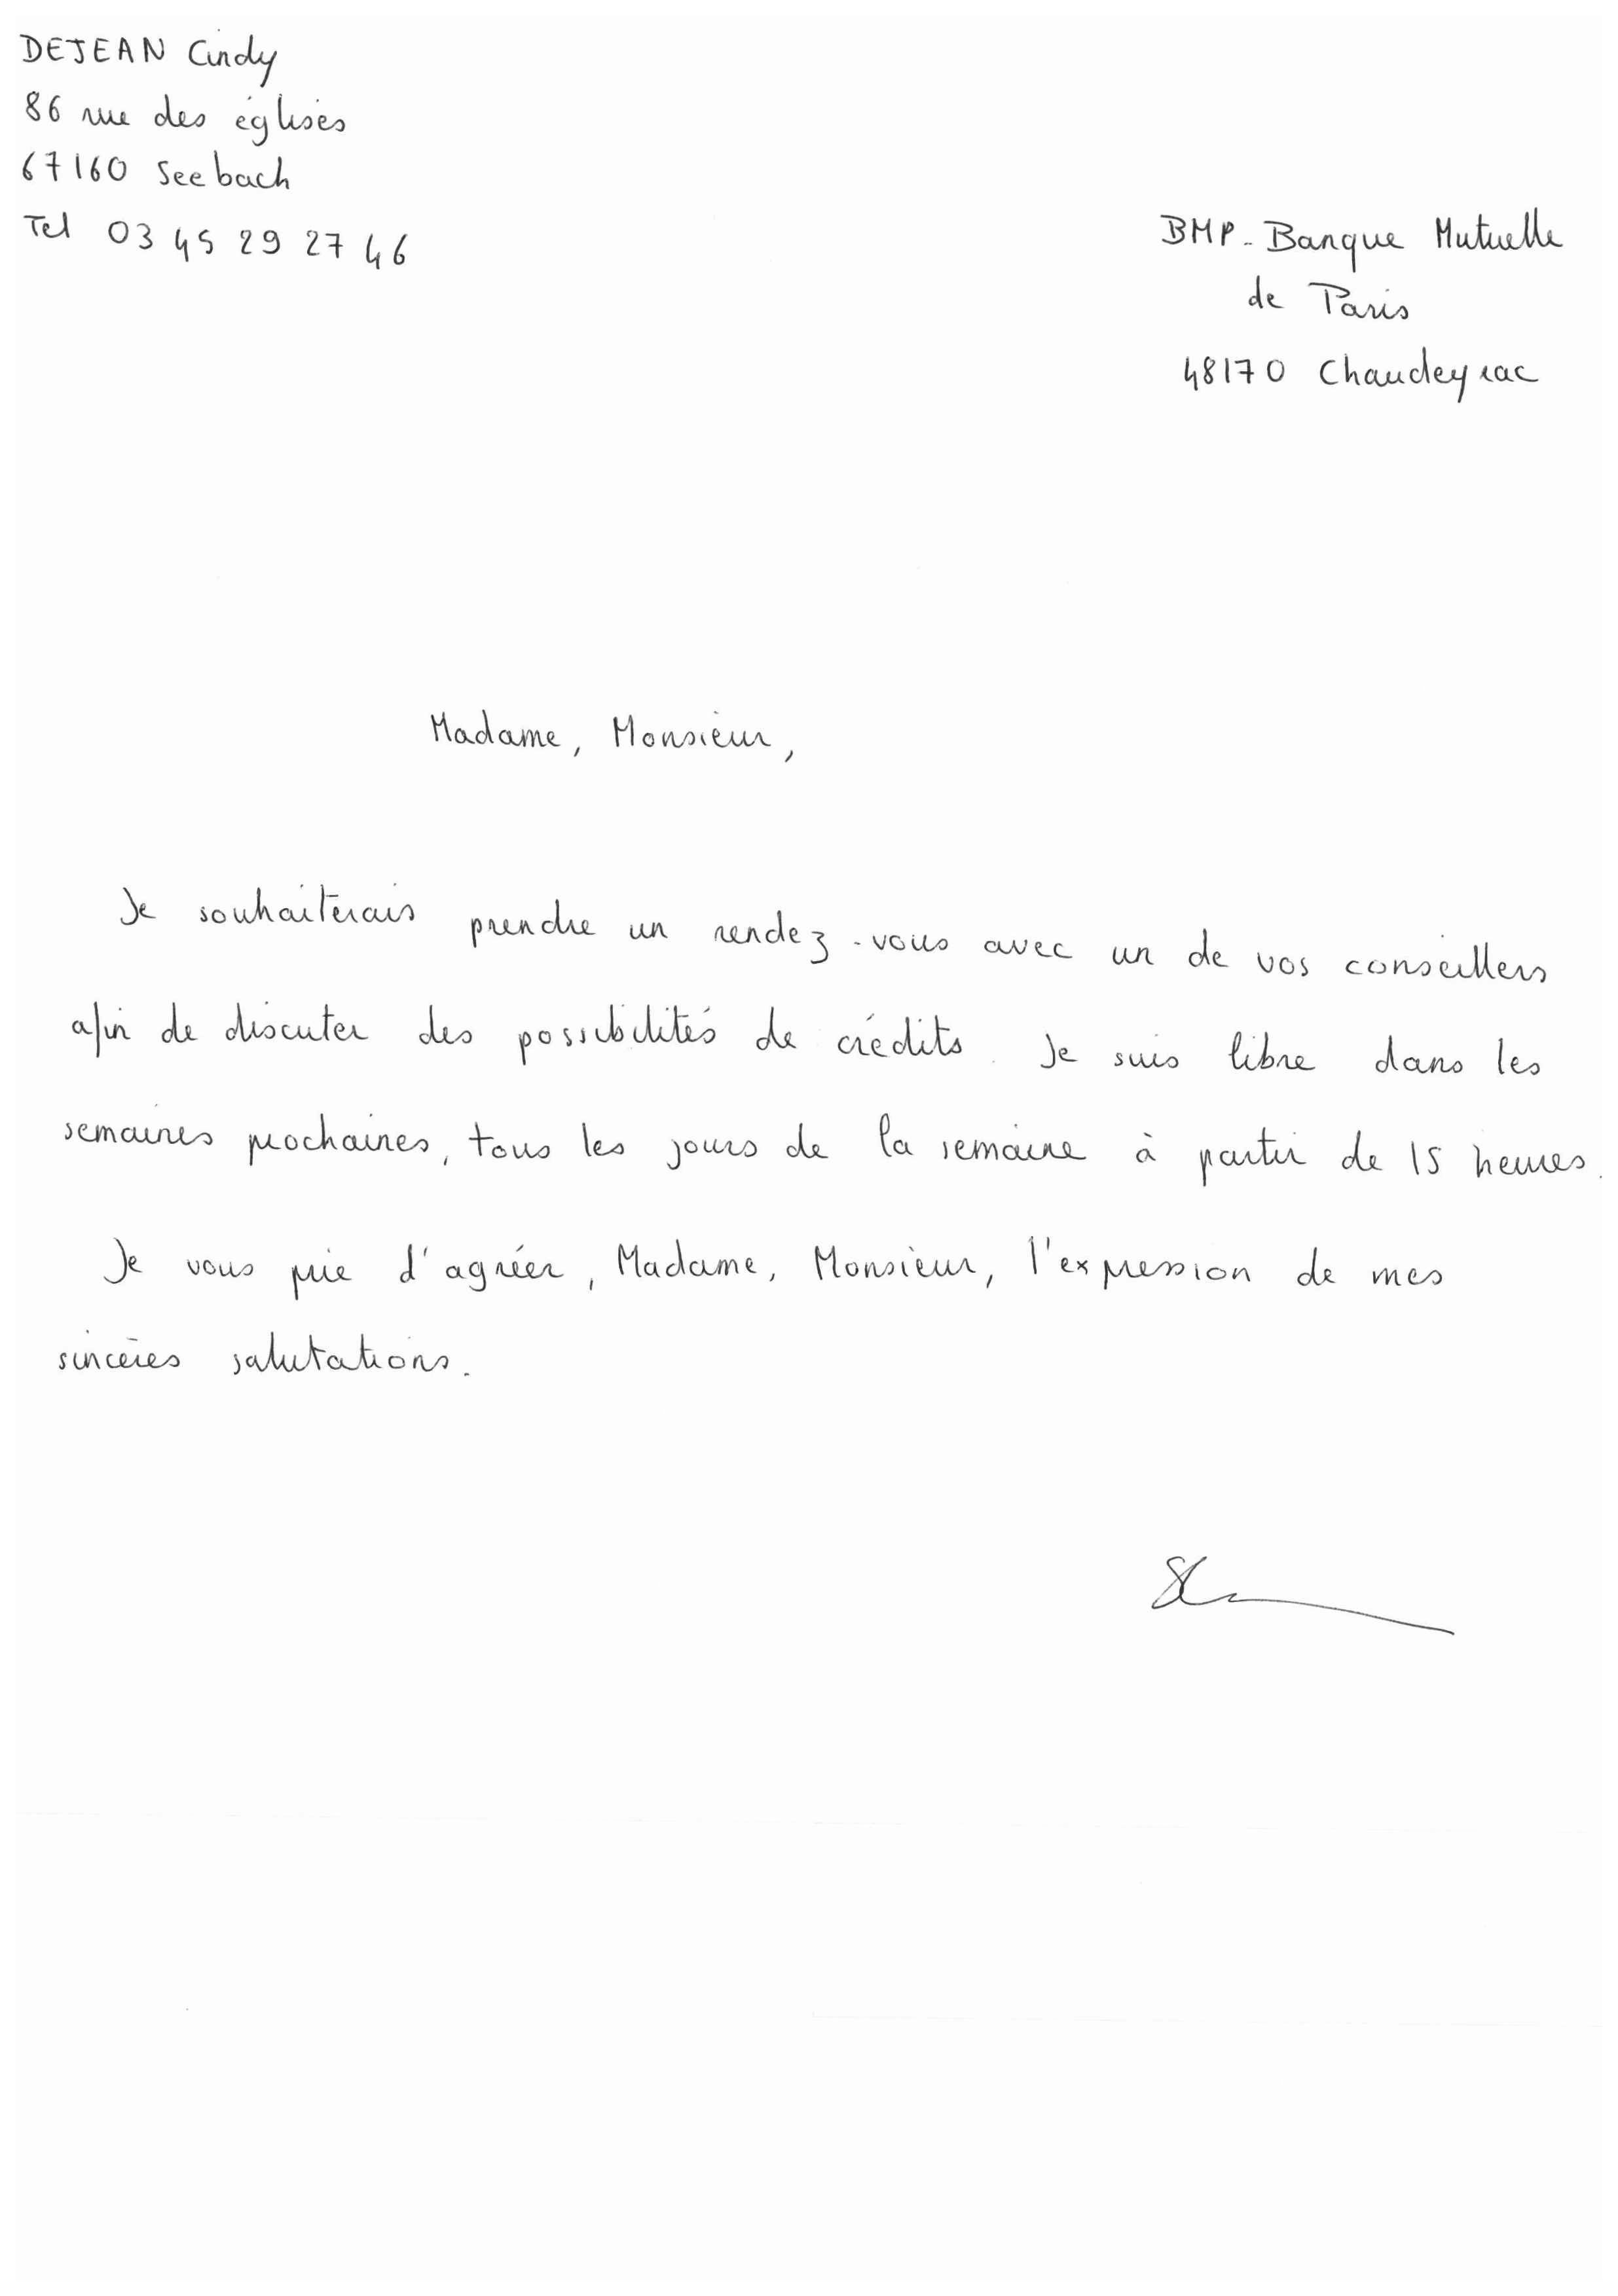 DEJEAN Cindy
86 rue des églises
67160 Seebach
Tel 03 45 29 27 46
BMP - Banque Mutuelle
de Paris
48170 Chaudeyrac
Madame, Monsieur,
Je souhaiterais prendre un rendez-vous avec un de vos conseillers
afin de discuter des possibilités de crédits. Je suis libre dans les
semaines prochaines, tous les jours de la semaine à partir de 15 heures.
Je vous prie d'agréer, Madame, Monsieur, l'expression de mes
sincères salutations.